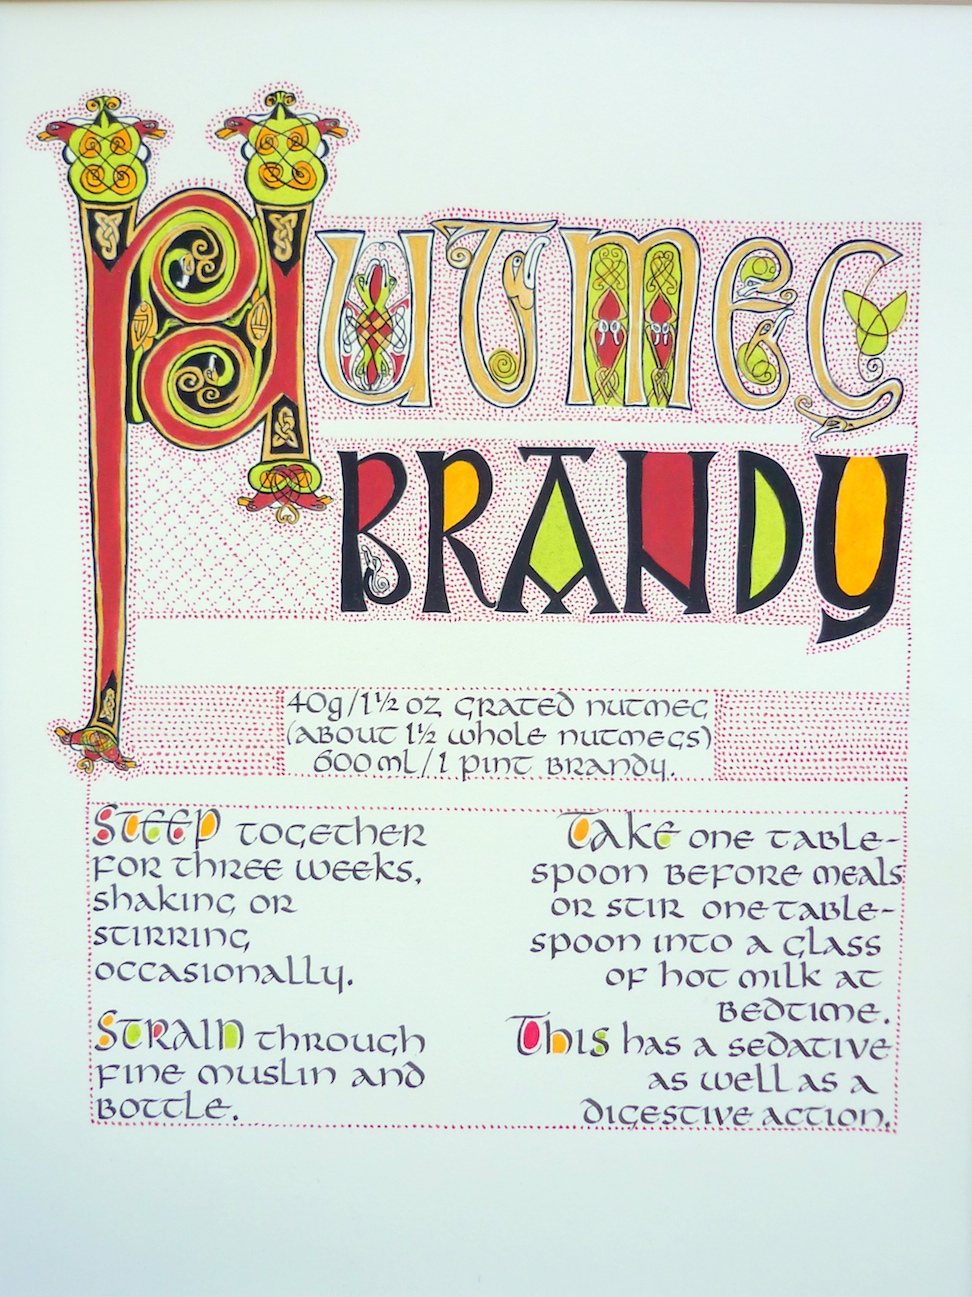 NUTMEG
BRANDY
40g/1½ oz grated nutmeg
(about 1½ whole nutmegs)
600ml/1 pint brandy.
Steep together
for three weeks,
shaking or
stirring
occasionally.
Strain through
fine muslin and
bottle.
Take one table-
spoon before meals
or stir one table-
spoon into a glass
of hot milk at
bedtime.
This has a sedative
as well as a
digestive action.